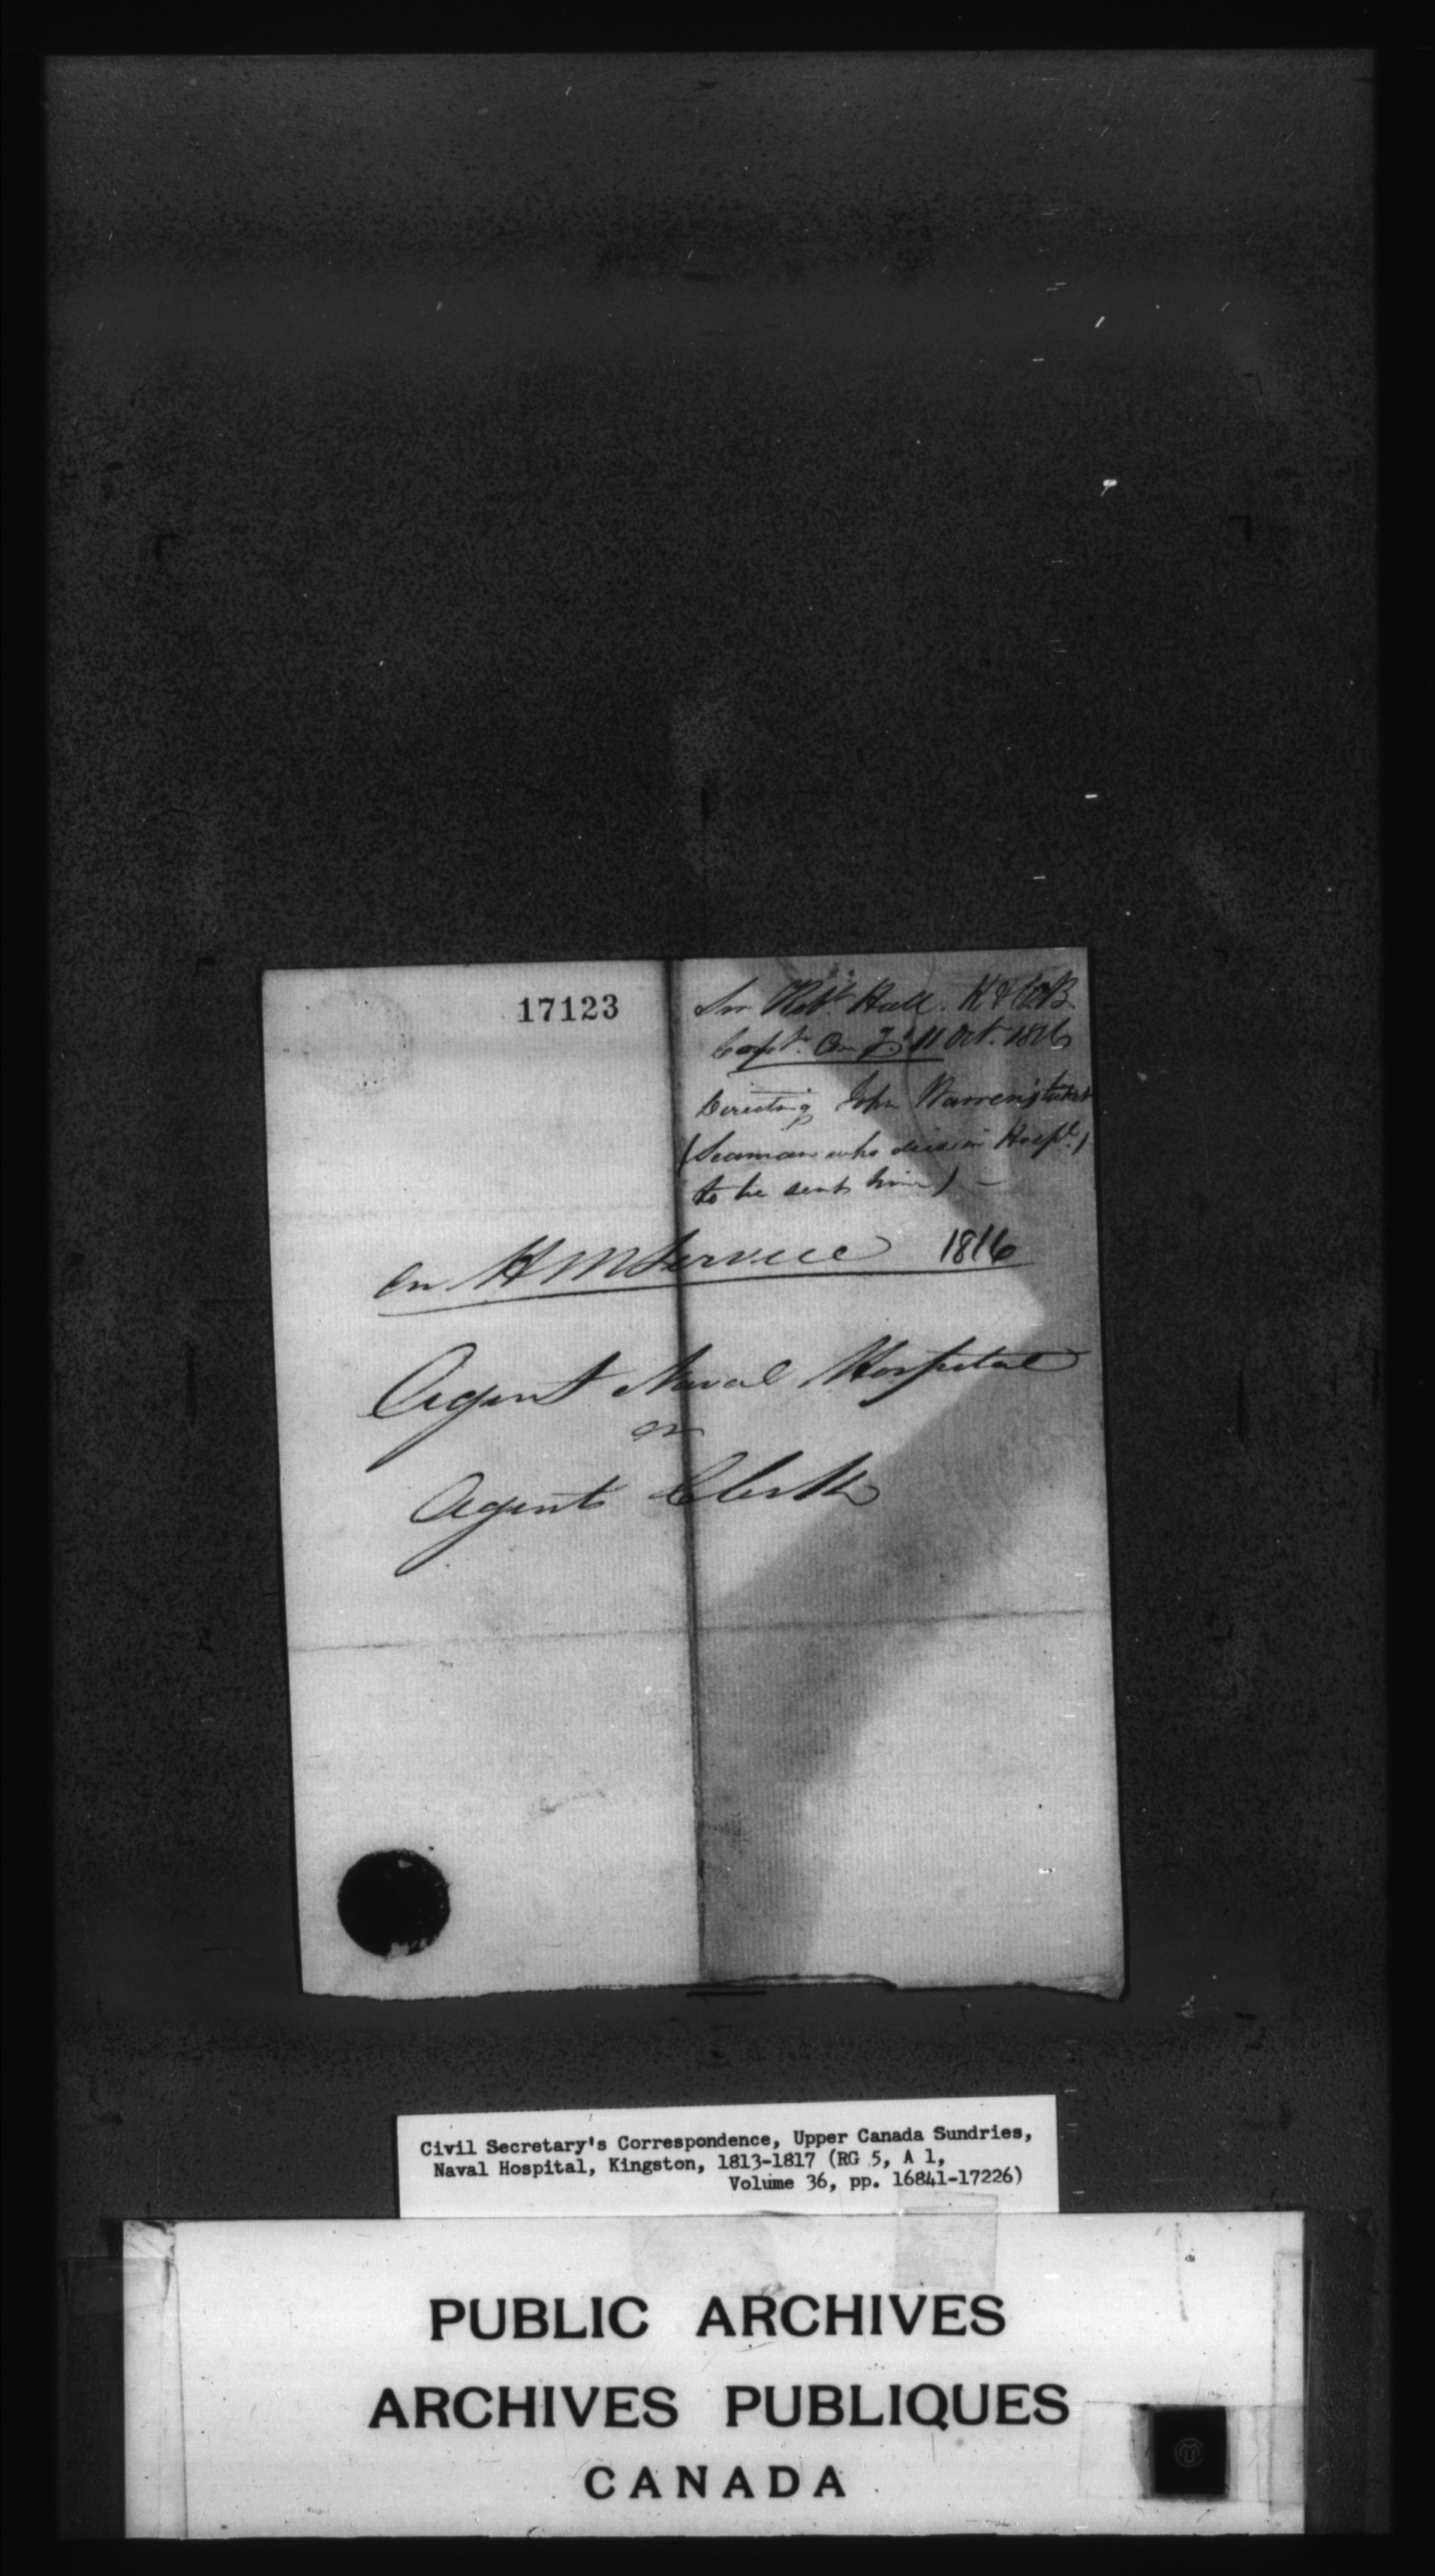 17123
Sir Robt. Hall. K & C.B.
Capt. Com
11 Oct. 1816
Directing John Warren's ticket
(Seaman who died in Hospl.)
to be sent him) -
On H M Service 1816
Agent Naval Hospital
or
Agents Clerk
Civil Secretary's Correspondence, Upper Canada Sundries,
Naval Hospital, Kingston, 1813-1817 (RG 5, A 1,
Volume 36, pp. 16841-17226)
PUBLIC ARCHIVES
ARCHIVES PUBLIQUES
CANADA